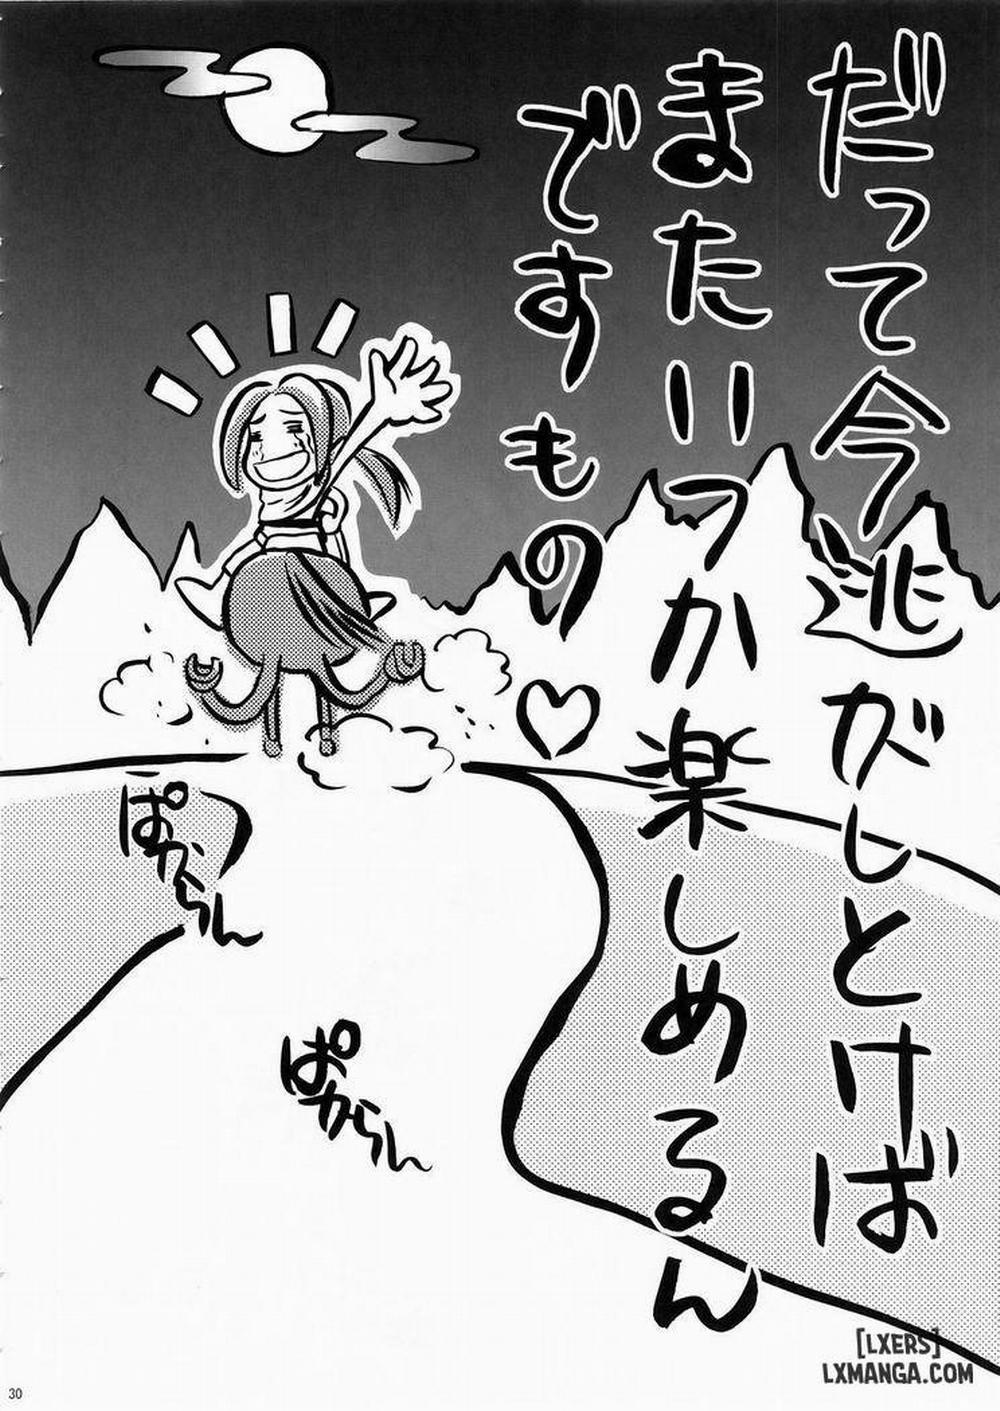 だって今逃がしとけば
またいつか楽しめるん
ですもの♡
ぱからっ
ぱからん
30
[LXERS]
LXMANGA.COM